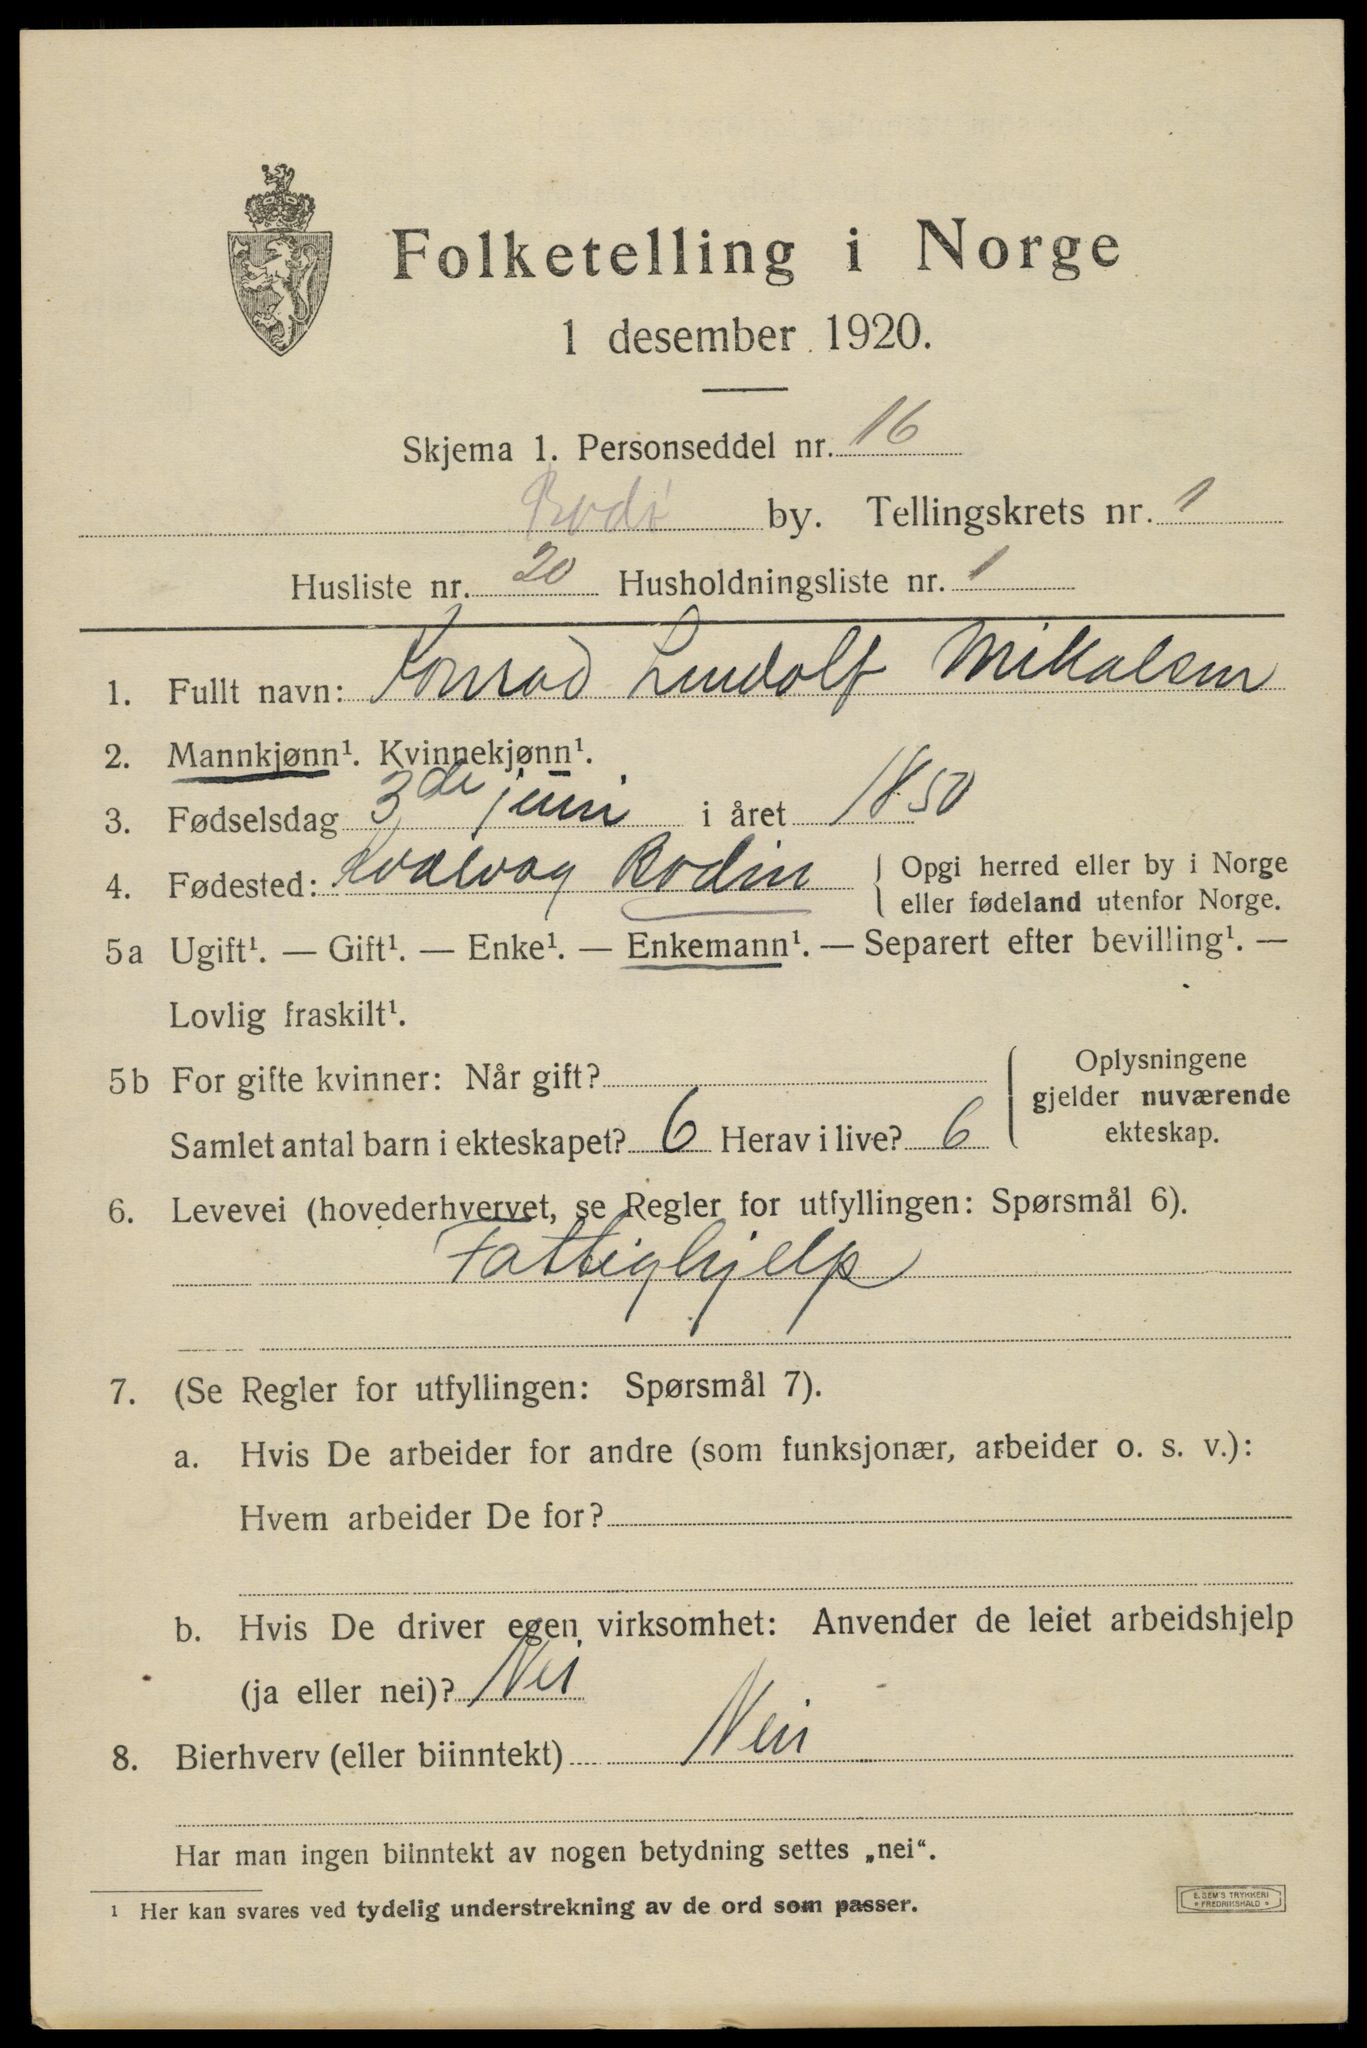 Folketelling i Norge
1 desember 1920.
Skjema 1. Personseddel nr. 16
Bodø by. Tellingskrets nr. 1
Husliste nr. 20 Husholdningsliste nr. 1
1. Fullt navn: Konrad Lindolf Mikalsen
2. Mannkjønn¹. Kvinnekjønn¹.
3. Fødselsdag 3de juni i året 1850
4. Fødested: Kvalvag Bodin { Opgi herred eller by i Norge
eller fødeland utenfor Norge.
5a Ugift¹. — Gift¹. — Enke¹. — Enkemann¹. — Separert efter bevilling¹. —
Lovlig fraskilt¹.
5b For gifte kvinner: Når gift?
Samlet antal barn i ekteskapet? 6 Herav i live? 6
Oplysningene
gjelder nuværende
ekteskap.
6. Levevei (hovederhvervet, se Regler for utfyllingen: Spørsmål 6).
Fattighjelp
7. (Se Regler for utfyllingen: Spørsmål 7).
a. Hvis De arbeider for andre (som funksjonær, arbeider o. s. v.):
Hvem arbeider De for?
b. Hvis De driver egen virksomhet: Anvender de leiet arbeidshjelp
(ja eller nei)? Nei
8. Bierhverv (eller biinntekt) Nei
Har man ingen biinntekt av nogen betydning settes „nei“.
¹ Her kan svares ved tydelig understrekning av de ord som passer.
E. SEM'S TRYKKERI
* FREDRIKSHALD *